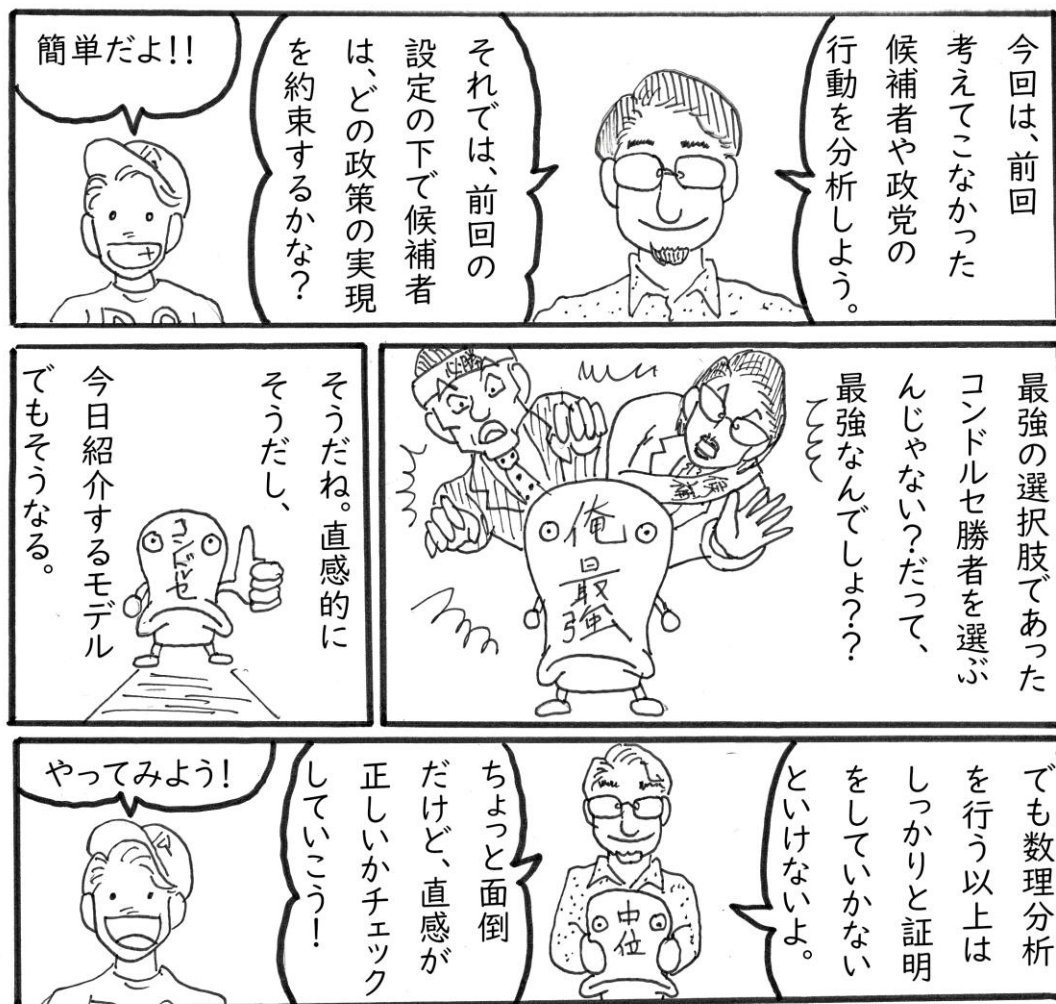 今回は、前回
考えてこなかった
候補者や政党の
行動を分析しよう。
それでは、前回の
設定の下で候補者
は、どの政策の実現
を約束するかな?
簡単だよ!!
最強の選択肢であった
コンドルセ勝者を選ぶ
んじゃない?だって、
最強なんでしょ??
必勝
俺最強
そうだね。直感的に
そうだし、
今日紹介するモデル
でもそうなる。
コンドルセ
でも数理分析
を行う以上は
しっかりと証明
をしていかない
といけないよ。
中位
ちょっと面倒
だけど、直感が
正しいかチェック
していこう!
やってみよう!